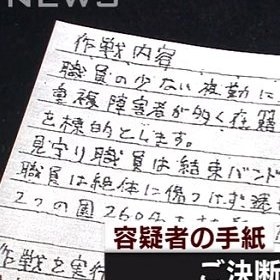 NEWS
作戦内容
職員の少ない夜勤に
重複障害者が多く在籍
を標的とします。
見守り職員は結束バンド
職員は絶体に傷つけず速
2つの園260名を
作戦を実行
容疑者の手紙
ご決断